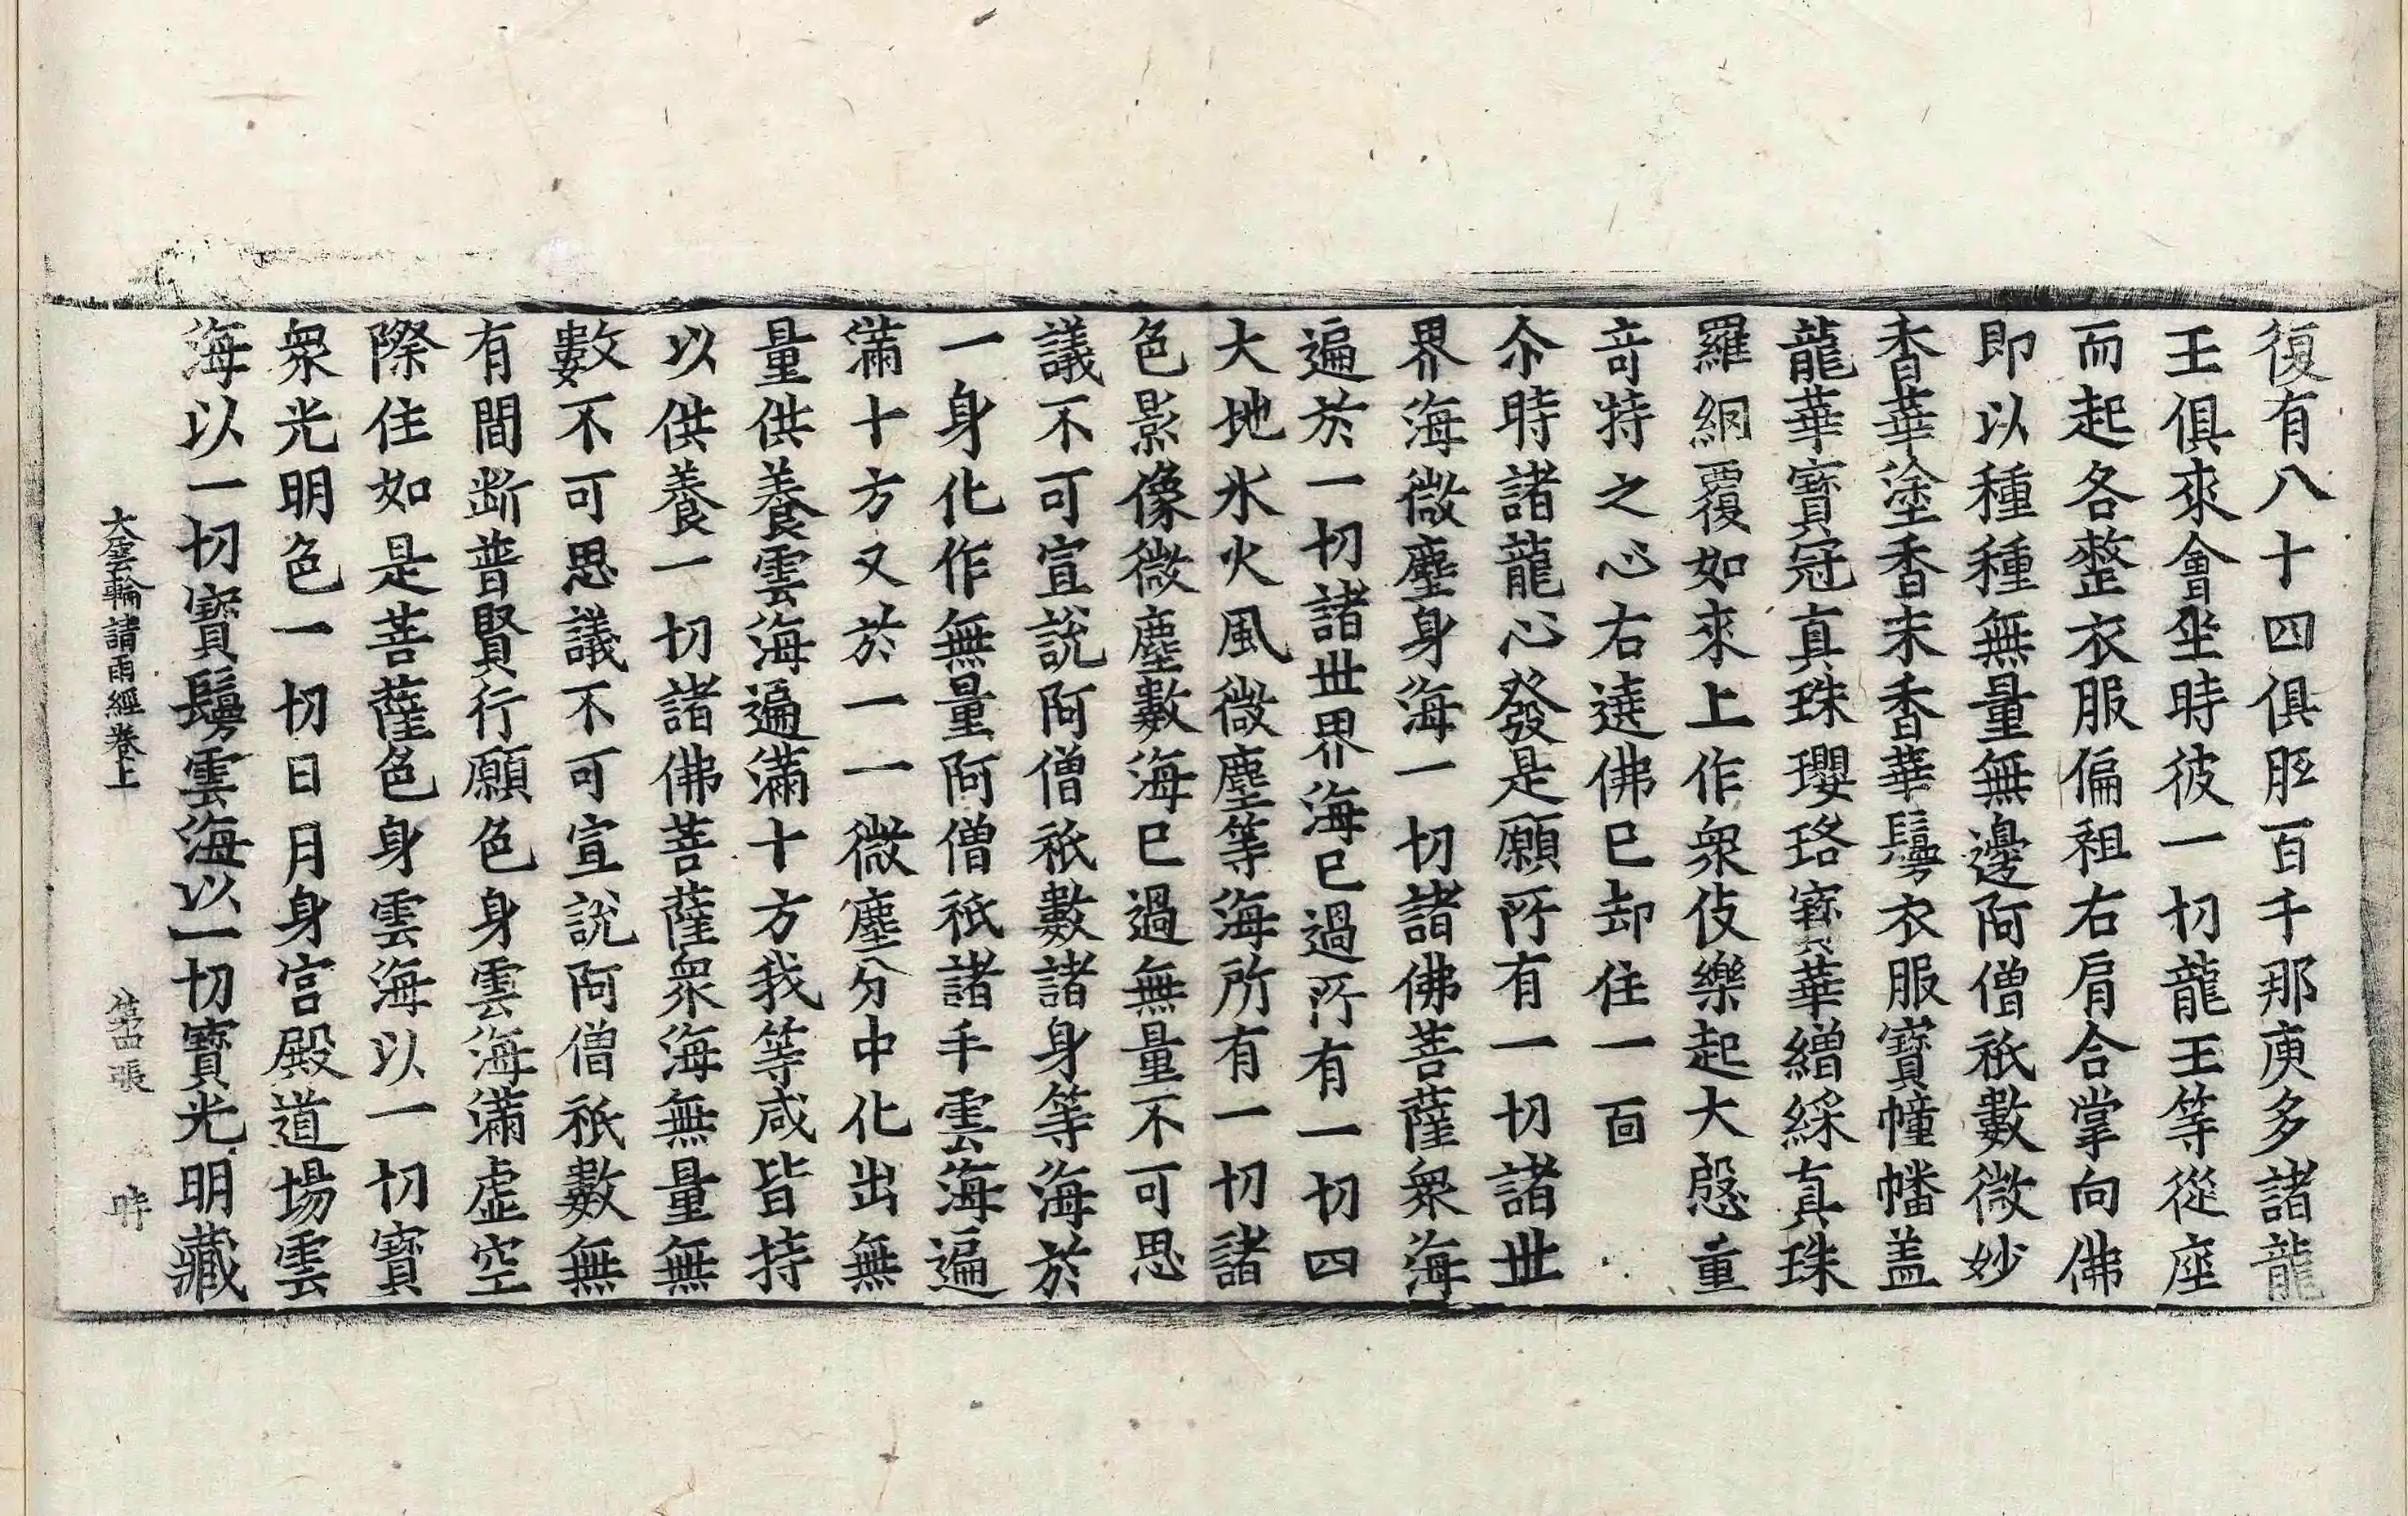 復有八十四俱胝百千那庾多諸龍
王俱來會坐時彼一切龍王等從座
而起各整衣服偏袒右肩合掌向佛
即以種種無量無邊阿僧祇數微妙
香華塗香末香華鬘衣服寶幢幡盖
龍華寶冠真珠瓔珞寶華繒綵真珠
羅網覆如來上作衆伎樂起大慇重
奇特之心右遶佛已却住一面
尒時諸龍心發是願所有一切諸世
界海微塵身海一切諸佛菩薩衆海
遍於一切諸世界海已過所有一切四
大地水火風微塵等海所有一切諸
色影像微塵數海已過無量不可思
議不可宣說阿僧祇數諸身等海於
一身化作無量阿僧祇諸手雲海遍
滿十方又於一一微塵分中化出無
量供養雲海遍滿十方我等咸皆持
以供養一切諸佛菩薩衆海無量無
數不可思議不可宣說阿僧祇數無
有間断普賢行願色身雲海滿虛空
際住如是菩薩色身雲海以一切寶
衆光明色一切日月身宮殿道場雲
海以一切寶鬘雲海以一切寶光明藏
大雲輪請雨經卷上 第四張 時